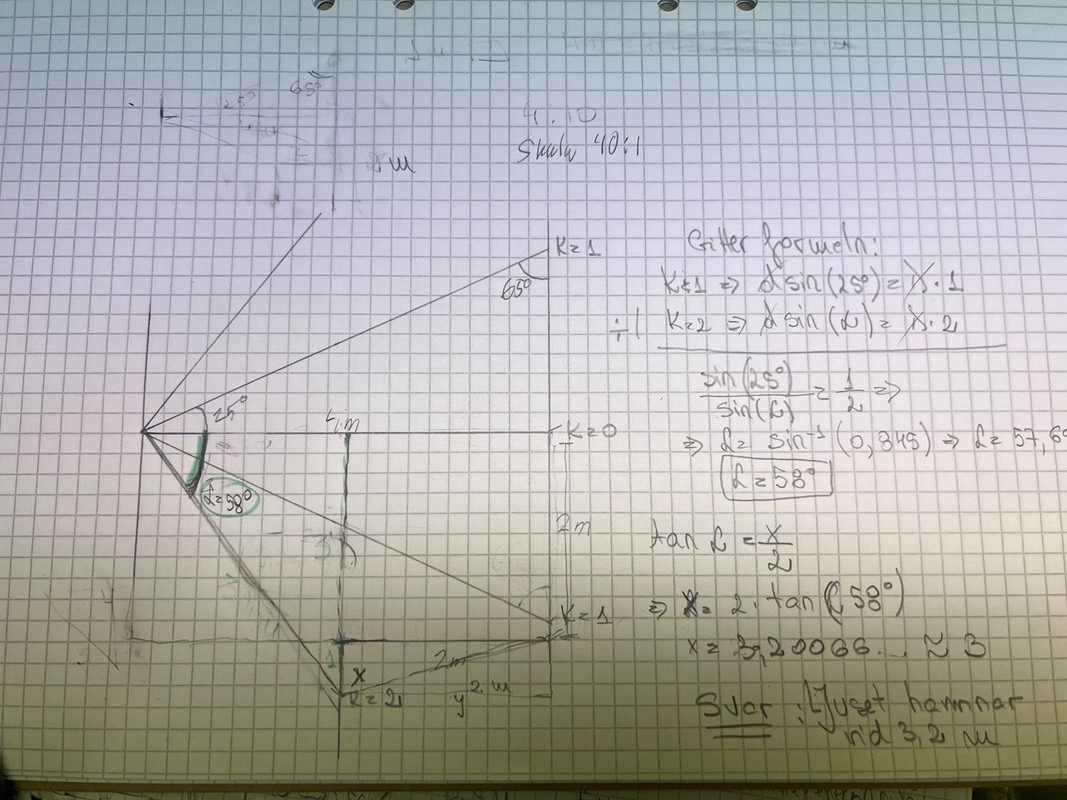 65°
25°
2 m
4:10
Skala 40:1
K=1
65°
25°
K=0
α=58°
2 m
K=1
X
2m
K=2
y
2 m
Gitter formeln:
K=1 ⇒ d sin(25°) = λ·1
÷( K=2 ⇒ d sin(α) = λ·2
sin(25°)/sin(α) = 1/2 ⇒
⇒ α = sin⁻¹(0,845) ⇒ α = 57,6
α = 58°
tan α = x/2
⇒ x = 2·tan(58°)
x = 3,20066... ≈ 3
Svar: Ljuset hamnar
vid 3,2 m